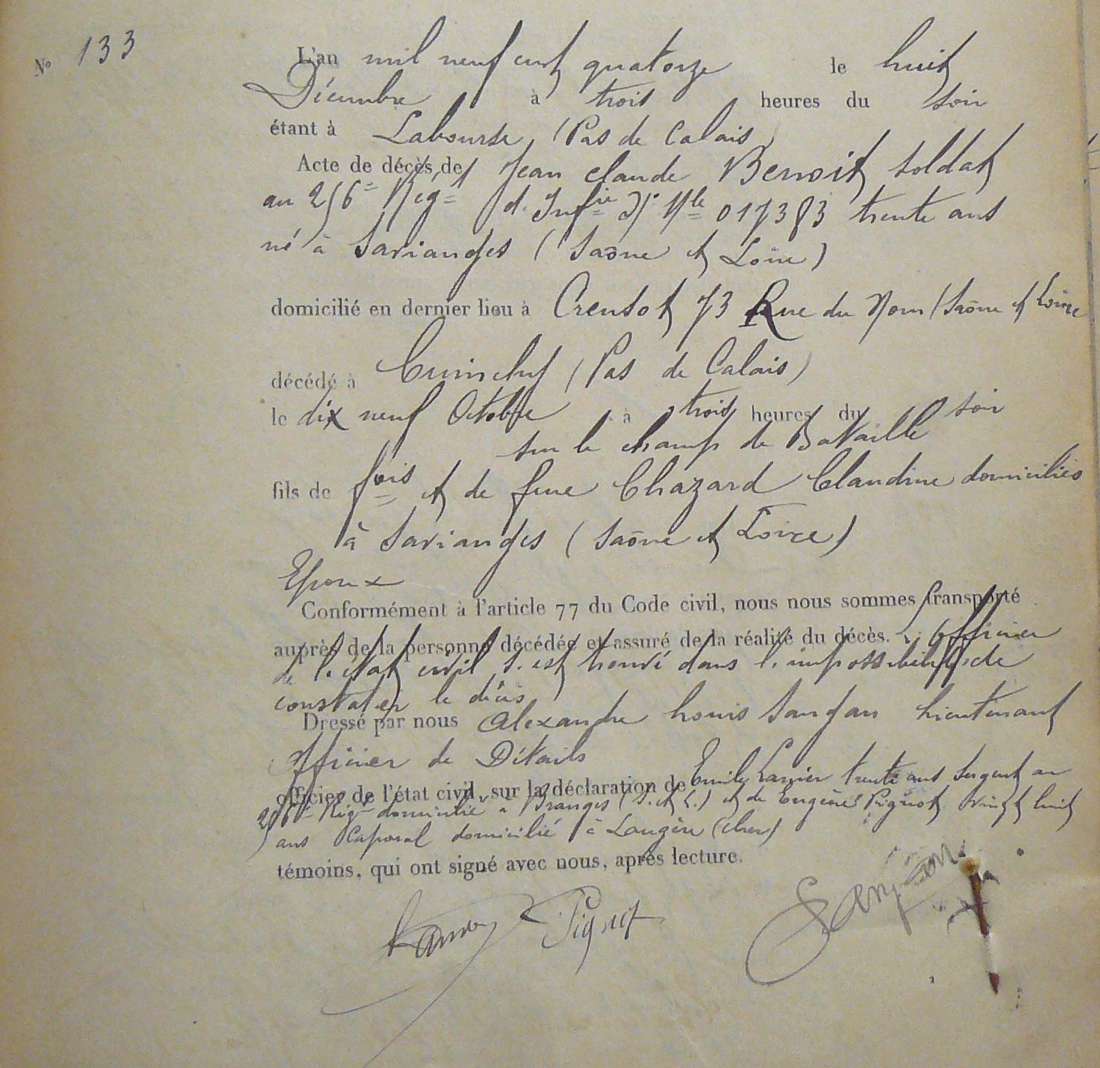 No 133
L'an mil neuf cent quatorze le huit
Décembre à trois heures du soir
étant à Labourse (Pas de Calais)
Acte de décès de Jean Claude Benoit soldat
au 256e Régt d'Infie Mle 017383 trente ans
né à Savianges (Saône et Loire)
domicilié en dernier lieu à Creusot 73 Rue du (Saône et Loire
décédé à Cuinchy (Pas de Calais)
le dix neuf Octobre à trois heures du soir
sur le champ de Bataille
fils de fois et de feue Chazard Claudine domiciliés
à Savianges (Saône et Loire)
Epoux
Conformément à l'article 77 du Code civil, nous nous sommes transporté
auprès de la personne décédée et assuré de la réalité du décès. L'Officier
de l'état civil s'est trouvé dans l'impossibilité de
constater le décès
Dressé par nous Alexandre Louis Lieutenant
Officier de Détails
officier de l'état civil, sur la déclaration de Emile trente ans Sergent au
256e Régt domicilié à Branges (S. et L.) et de Eugène Pignot vingt huit
ans Caporal domicilié à Laugère (Cher)
témoins, qui ont signé avec nous, après lecture.
Pignot